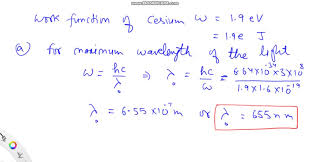 work function of Cesium ω = 1.9 eV
= 1.9 e J
ⓐ for maximum wavelength of the light
ω = hc/λ₀ ⇒ λ₀ = hc/ω = 6.64×10⁻³⁴×3×10⁸/1.9×1.6×10⁻¹⁹
λ₀ = 6.55×10⁻⁷ m or λ₀ = 655 nm